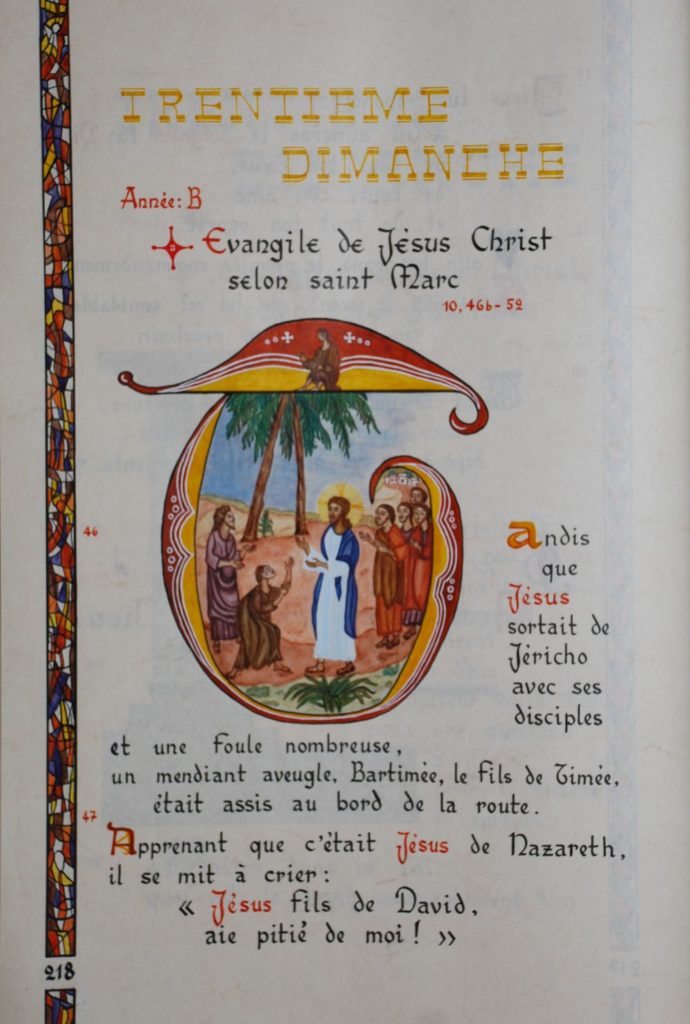 TRENTIEME
DIMANCHE
Année: B
Evangile de Jésus Christ
selon saint Marc
10, 46b-52
46
Tandis
que
Jésus
sortait de
Jéricho
avec ses
disciples
et une foule nombreuse,
un mendiant aveugle, Bartimée, le fils de Timée,
était assis au bord de la route.
47
Apprenant que c'était Jésus de Nazareth,
il se mit à crier:
« Jésus fils de David,
aie pitié de moi! »
218